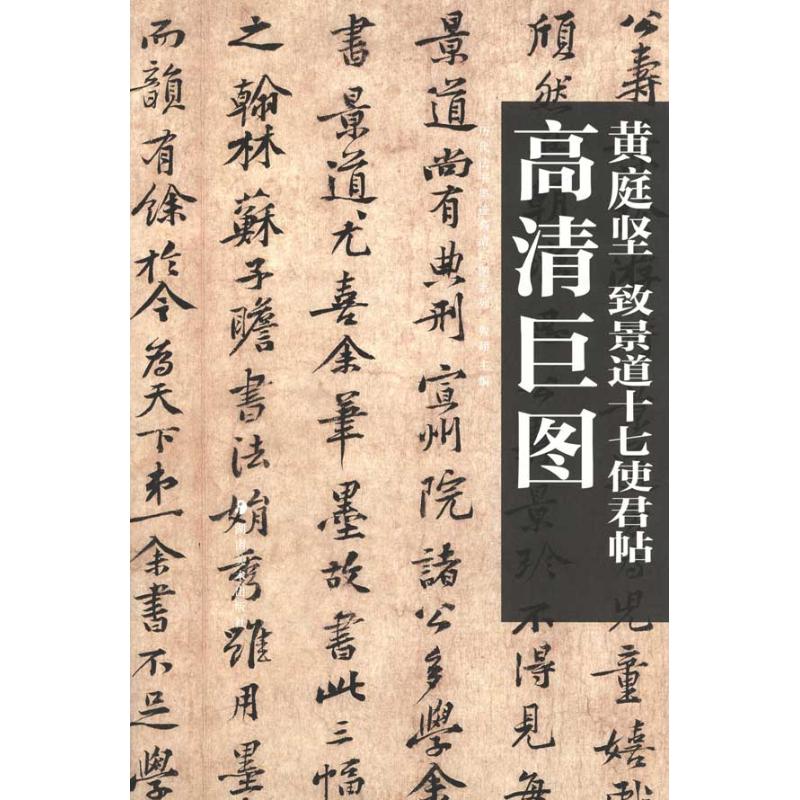 黄庭坚 致景道十七使君帖
高清巨图
公壽
兒童嬉戲
頎然
景珍不得見每
景道尚有典刑宣州院諸公多學余
書景道尤喜余筆墨故書此三幅
之翰林蘇子瞻書法娟秀雖用墨
而韻有餘於今為天下第一余書不足學
主编